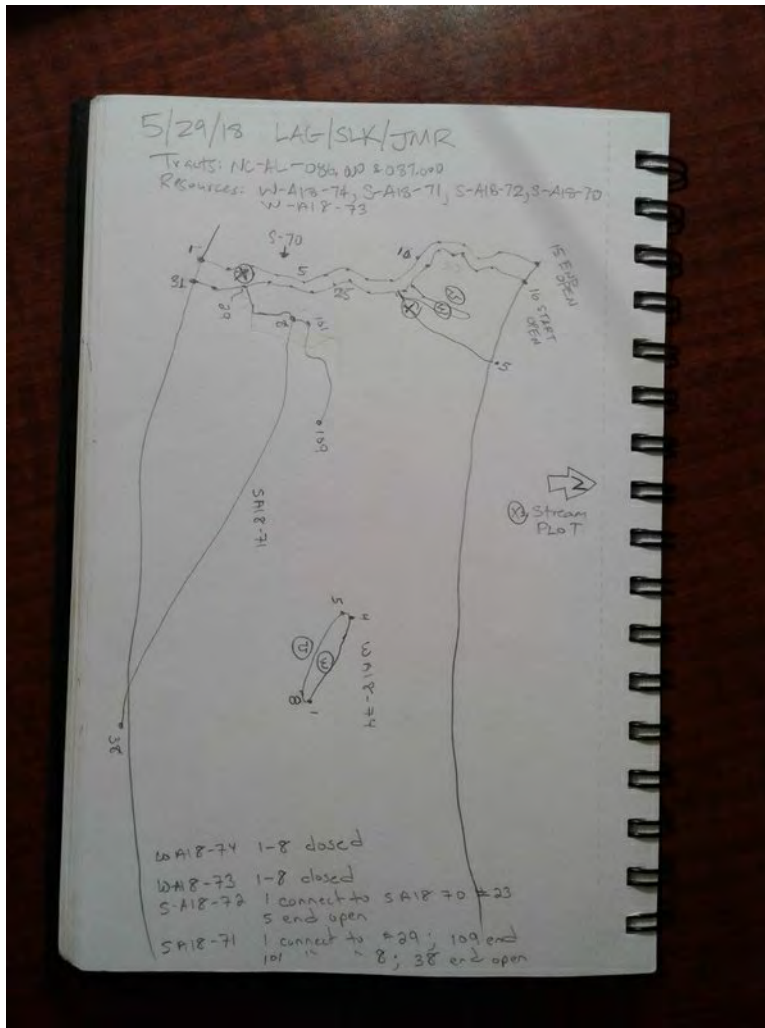 5/29/18 LAG/SLK/JMR
Tracts: NC-AL-086.000 & 087.000
Resources: W-A18-74, S-A18-71, S-A18-72, S-A18-70
W-A18-73
S-70
1
5
10
15 END OPEN
31
25
16 START OPEN
29
8
101
U
W
X
5
109
SA18-71
N
X = Stream
PLOT
5
4
U
W
WA18-74
8
1
38
WA18-74 1-8 closed
WA18-73 1-8 closed
S-A18-72 1 connect to SA18 70 #23
5 end open
SA18-71 1 connect to #29; 109 end
101 " " 8; 38 end open